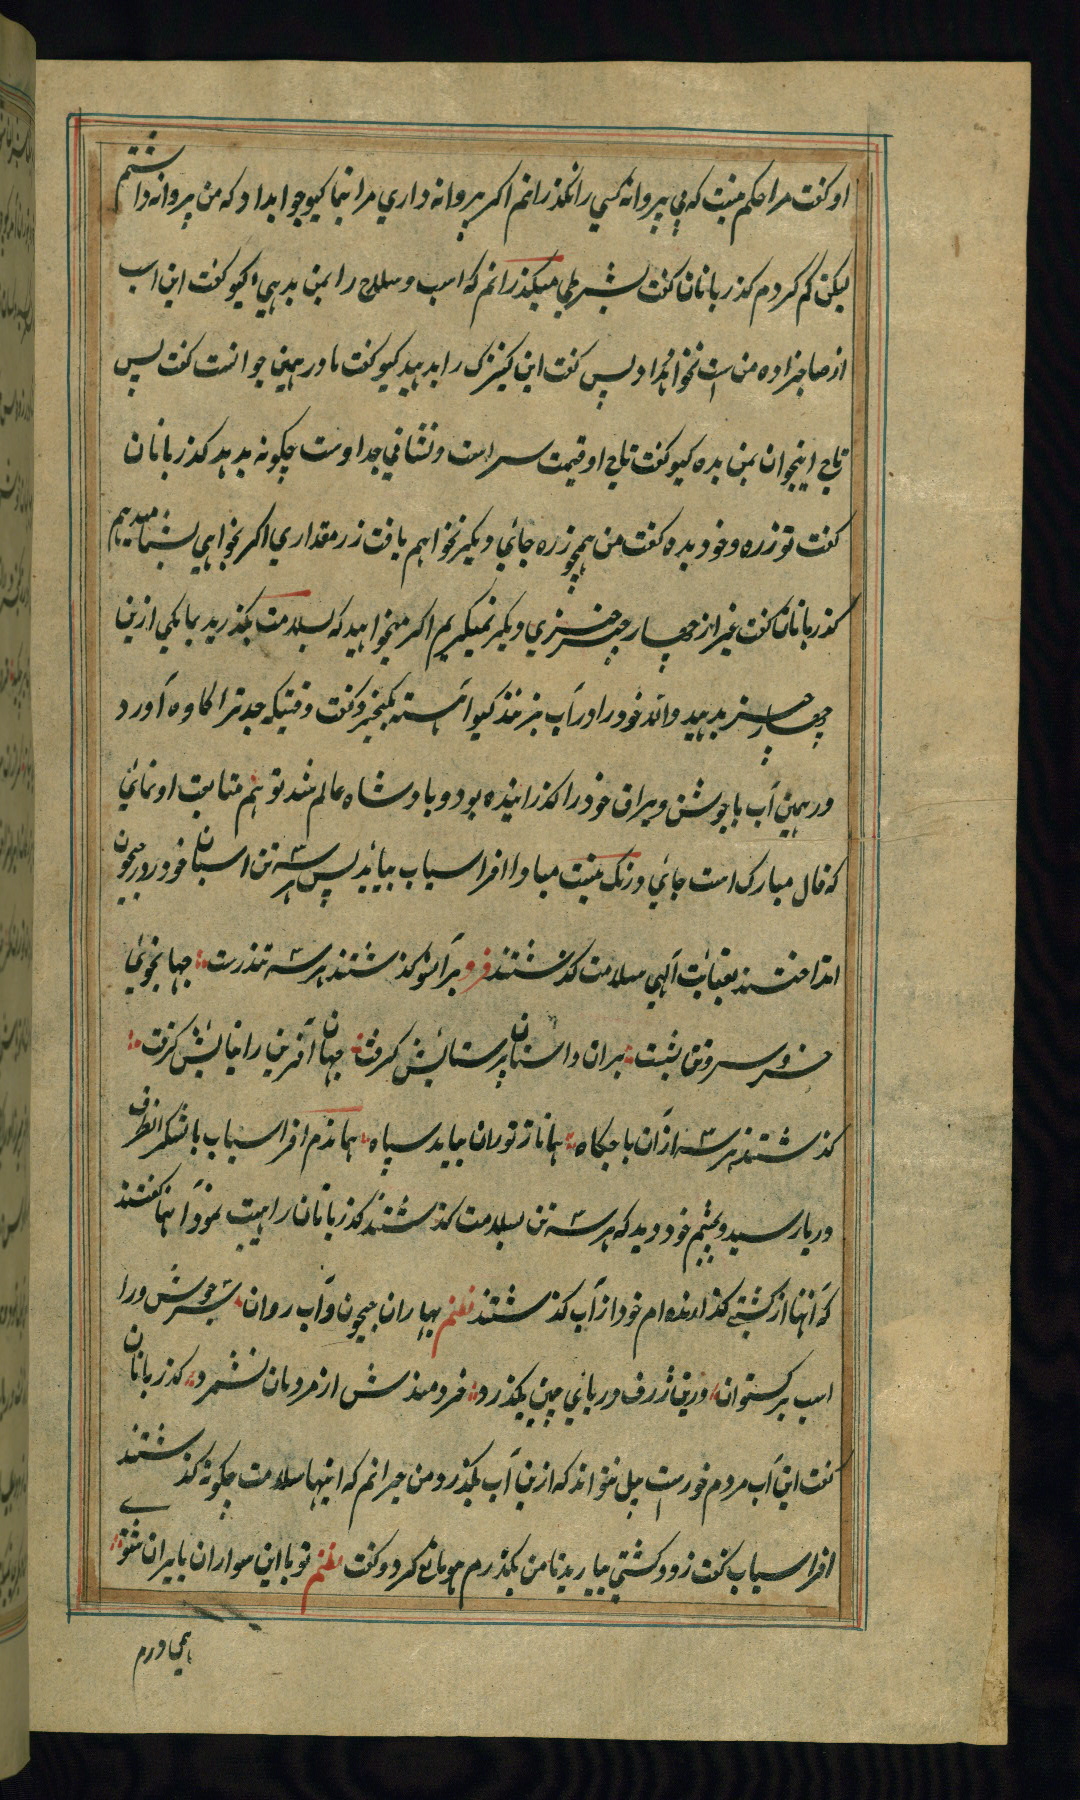 او کفت مرا حکم نیست که بی پروانه کسی را نکذرانم اکر پروانه داری مرا بنما کیو جوابداد که من پروانه داشتم
لیکن کم کردم کذربانان کفت بشرطی میکذرانم که اسب و سلاح را بمن بدهی کیو کفت این اسپ
از صاحبزاده من است نخواهد داد پس کفت این کنیزک را بدهید کیو کفت مادر همین جوانست کفت پس
تاج اینجوان بمن بده کیو کفت تاج او قیمت سر است و نشانی جد اوست چکونه بدهد کذربانان
کفت تو زره و خود بده کفت من همچو زره جائی دیکر نخواهم یافت زر مقداری اکر بخواهی بشما میدهم
کذربانان کفت غیر از چهار چیز چیزی دیکر نمیکیریم اکر میخواهید که بسلامت بکذرید بما یکی ازین
چهار چیز بدهید والا خود را در آب بزنید کیو آهسته بکیخسرو کفت وقتیکه جد ترا کاوه آورد
در همین آب با جوشن و یراق خود را کذرانیده بود و بادشاه عالم شد تو هم متابعت او نمائی
که فال مبارک است جائی درنک نیست مبادا افراسیاب بیاید پس هر سه تن اسپان خود در جیحون
انداختند بعنایت آلهی سلامت کذشتند فرد بر آنسو کذشتند هر سه تندرست جهانجوی
خسرو سر و تن بشست بران داستان پرستایش کرفت جهان آفرین را نیایش کرفت
کذشتند هر سه ازان باجکاه همانا ز توران بیاید سپاه هماندم افراسیاب با لشکر انطرف
دریا رسید و بچشم خود دید که هر سه تن بسلامت کذشتند کذربانان را هیبت نمود آنها کفتند
که آنها از کشتی کذرانده‌ام خود از آب کذشتند نظم بهاران جیحون و آب روان سه جوشن ورا
اسب برکستوان درین ژرف دریای چین بکذرد خردمندش از مردمان نشمرد کذربانان
کفت این آب مردم خورست پیل نتواند که ازین آب بکذرد من حیرانم که اینها سلامت چکونه کذشتند
افراسیاب کفت زود کشتی بیارید تا من بکذرم هومان منع کرد و کفت نظم تو با این سواران بایران شوی
همی در دم